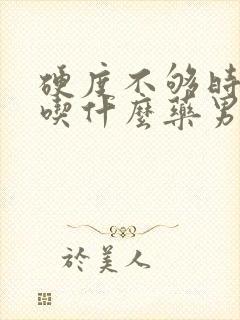 硬度不够时
喫什麼藥男
於美人